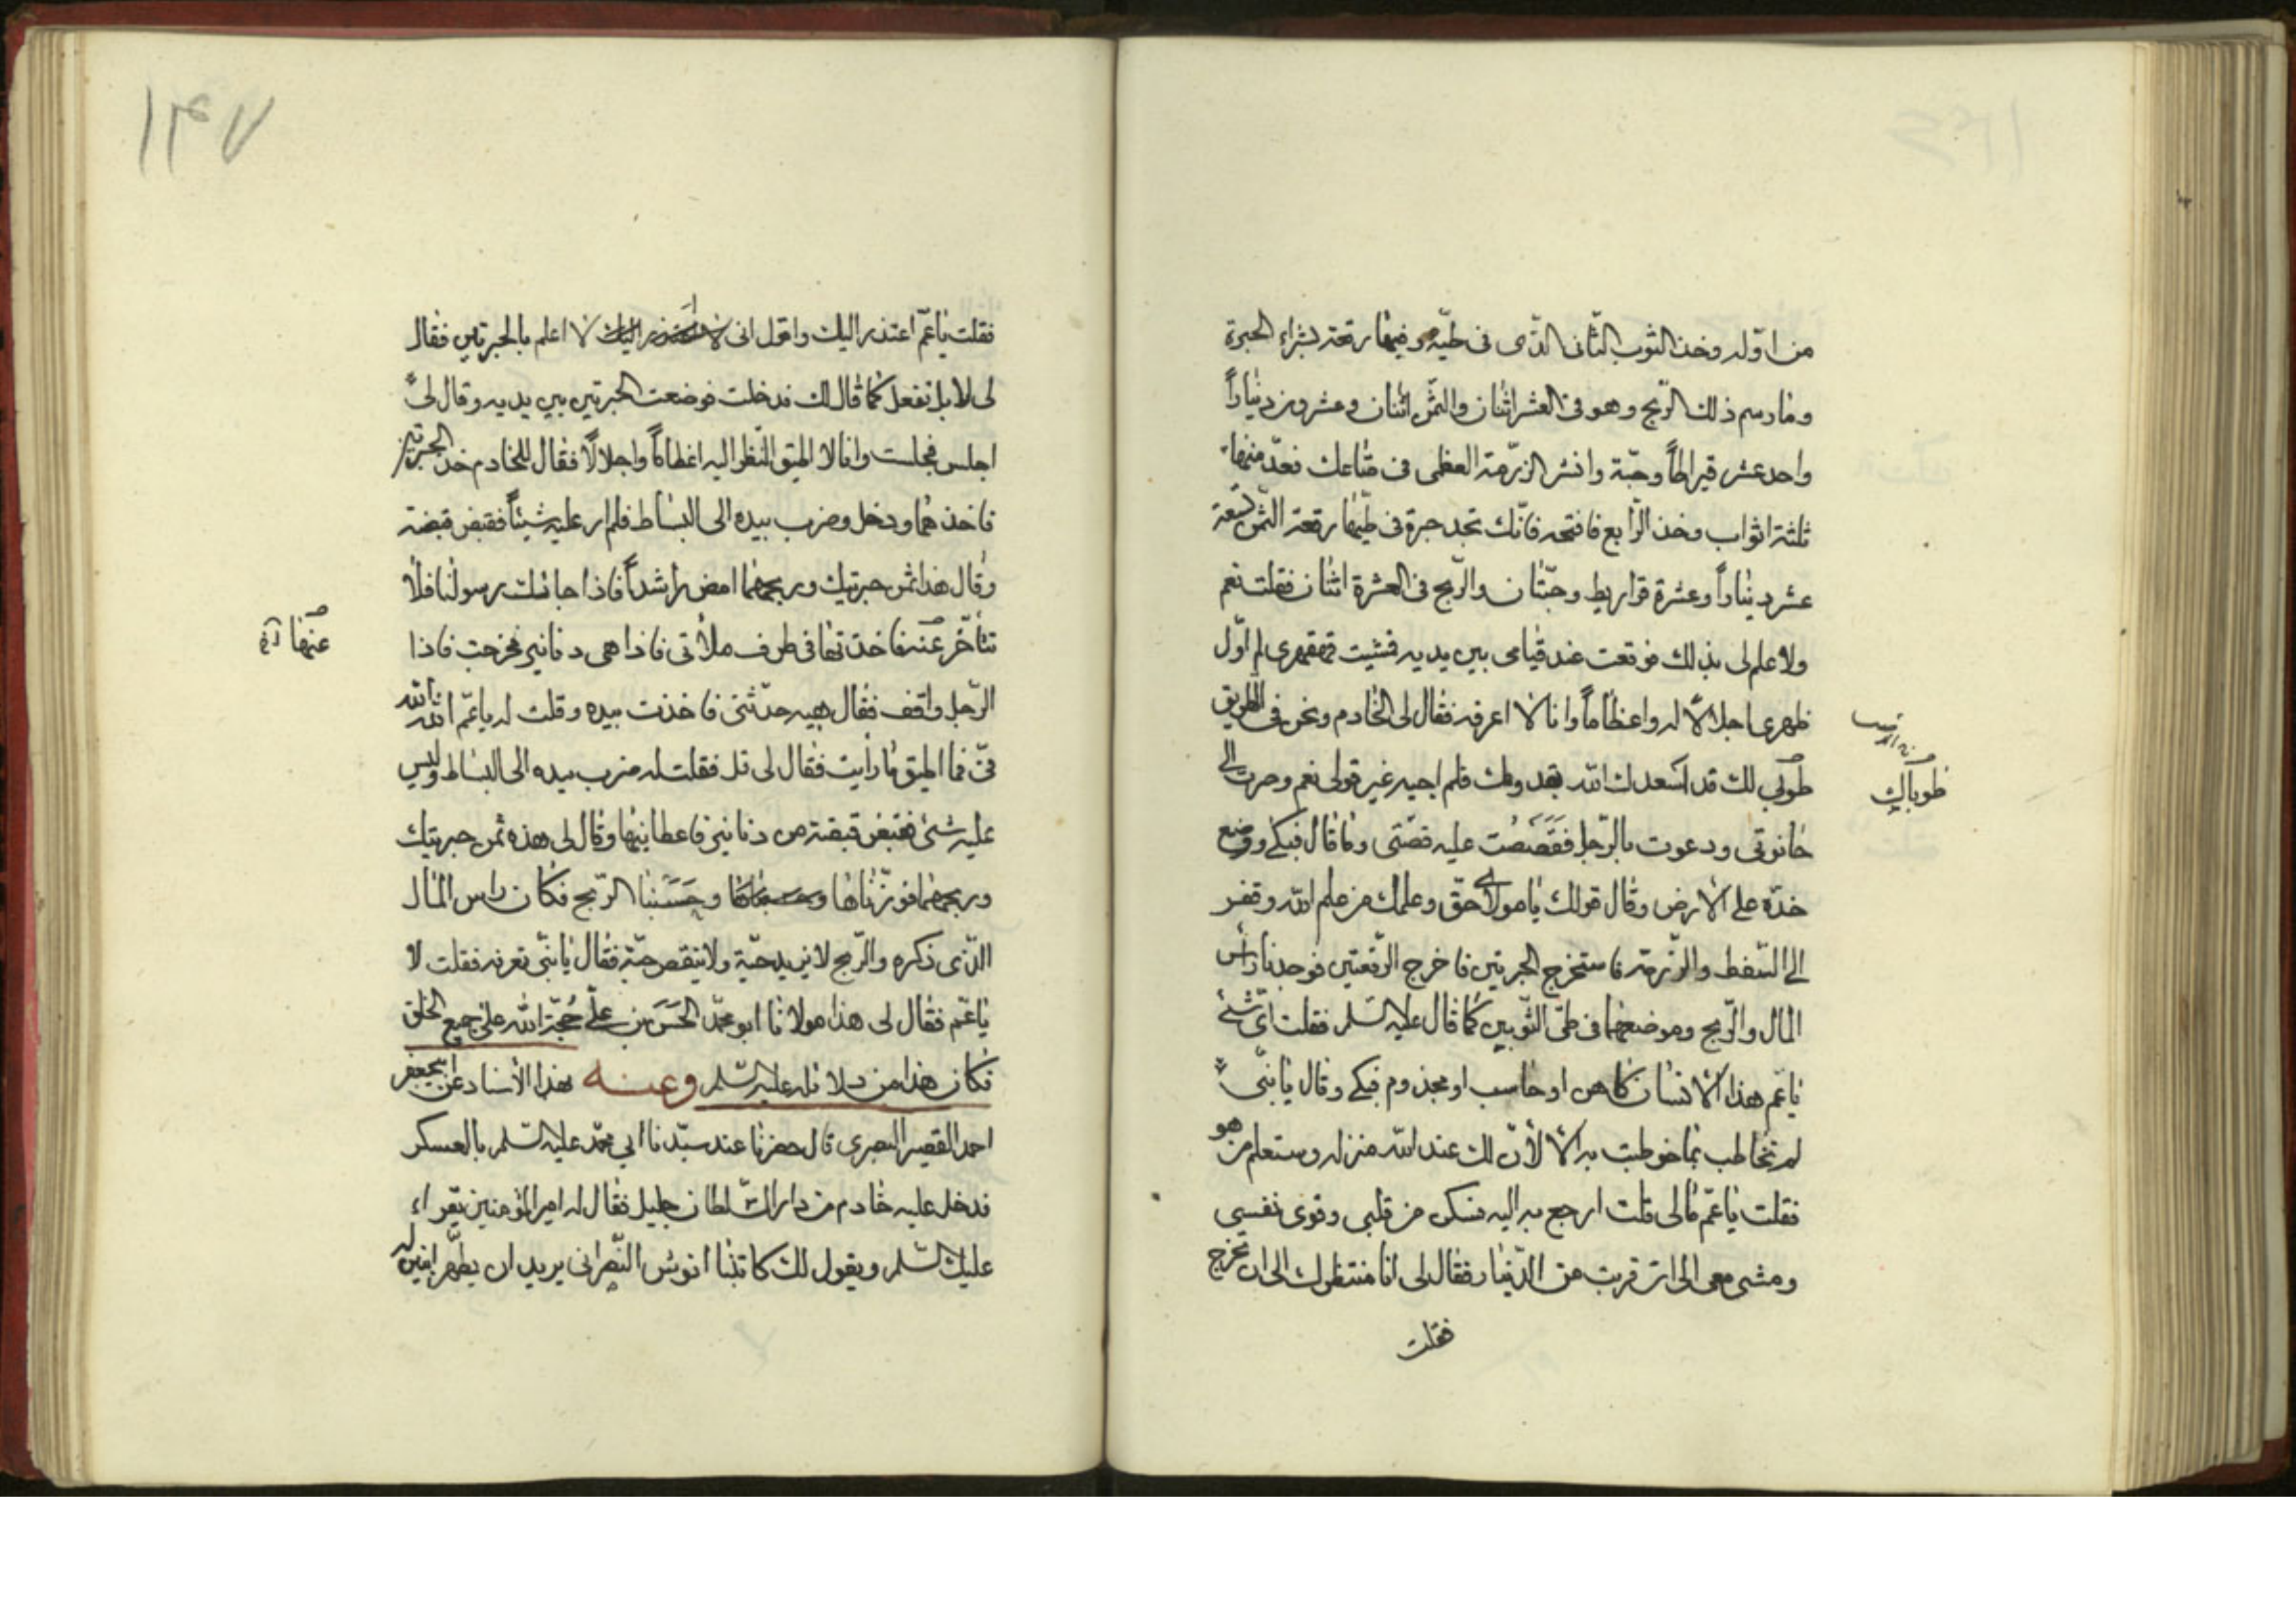 من اوّله وخذ الثوب الثّانى الذّى فى طيّه وفيها رقعة بشراء الحبرة
وما رسم ذلك الرّبح وهو فى العشر اثنان والثمّن اثنان وعشرون ديناراً
واحد عشر قيراطاً وحبّة وانشر الرزّمة العظمى فى متاعك فعدّ منها
ثلثة اثواب وخذ الرّابع فافتحه فانّك تجد حبرة فى طيّها رقعة الثمّن تسعة
عشر ديناراً وعشرة قراريط وحبّتان والرّبح فى العشرة اثنان فقلت نعم
ولا علم لى بذلك فوقعت عند قيامى بين يديه فمشيت قهقهرى لم اوّل
ظهرى اجلالاً له واعظاماً وانا لا اعرفه فقال لى الخادم ونحن فى الطريق
طوبى لك قد اسعدك الله بقدومك فلم اجبه غير قولى نعم وصرت الى
طوباك
حانوتى ودعوت بالرّجل فقَصَصْت عليه قصّتى وما قال فبكى ووضع
خدّه على الارض وقال قولك يا مولاى حقّ وعلمك من علم الله وقفز
الى السّفط والرزّمة فاستخرج الحبرتين فاخرج الرّقعتين فوجدنا رأس
المال والرّبح وموضعهما فى طىّ الثّوبين كما قال عليه السّلم فقلت اىّ شئ
يا عمّ هذا الانسان كاهن او حاسب او مجذوم فبكى وقال يا بنّى
لم تخاطب بما خوطبت به الا لأنّ لك عند الله منزله وستعلم من هو
فقلت يا عمّ مالى قلت ارجع به اليه فسكن من قلبى وقوى نفسى
ومشى معى الى ان قربت من الدّار فقال لى انا منتظرك الى ان تخرج
فقلت
١٣٧
فقلت يا عمّ اعتذر اليك واقول انى لا اعلم بالحبرتين فقال
لى لا بل تفعل كما قال لك فدخلت فوضعت الحبرتين بين يديه وقال لى
اجلس فجلست وانا لا اطيق النّظر اليه اعظاماً واجلالاً فقال للخادم خذ الحبرتين
فاخذهما ودخل وضرب بيده الى البساط فلم ار عليه شيئاً فقبض قبضة
وقال هذا ثمن حبرتيك وربحهما امض راشداً فاذا جائك رسولنا فلا
تتأخّر عنه فاخذتها فى طرف ملائتى فاذا هى دنانير فخرجت فاذا
عنها
الرّجل واقف فقال هيه حدّثنى فاخذت بيده وقلت له يا عمّ الله الله
فىّ فما اطيق ما رأيت فقال لى قل فقلت له ضرب بيده الى البساط وليس
عليه شئ فقبض قبضة من دنانير فاعطانيها وقال لى هذه ثمن حبرتيك
وربحهما فوزنّاها وحَسَبنا الرّبح فكان راس المال
الذّى ذكره والرّبح لا يزيد حبّة ولا ينقص حبّة فقال يا بنّى تعرفه فقلت لا
يا عمّ فقال لى هذا مولانا ابو محمّد الحَسَن بن علىّ حُجّة الله على جميع الخلق
فكان هذا من دلائله عليه السّلم وعنه بهذا الأسناد عن ابى جعفر
احمد القصير البصرى قال حضرنا عند سيّدنا ابي محمّد عليه السّلم بالعسكر
فدخل عليه خادم من دار السّلطان جليل فقال له امير المؤمنين يقراء
عليك السّلم ويقول لك كاتبنا انوش النّصرانى يريد ان يطهّر ابنين له